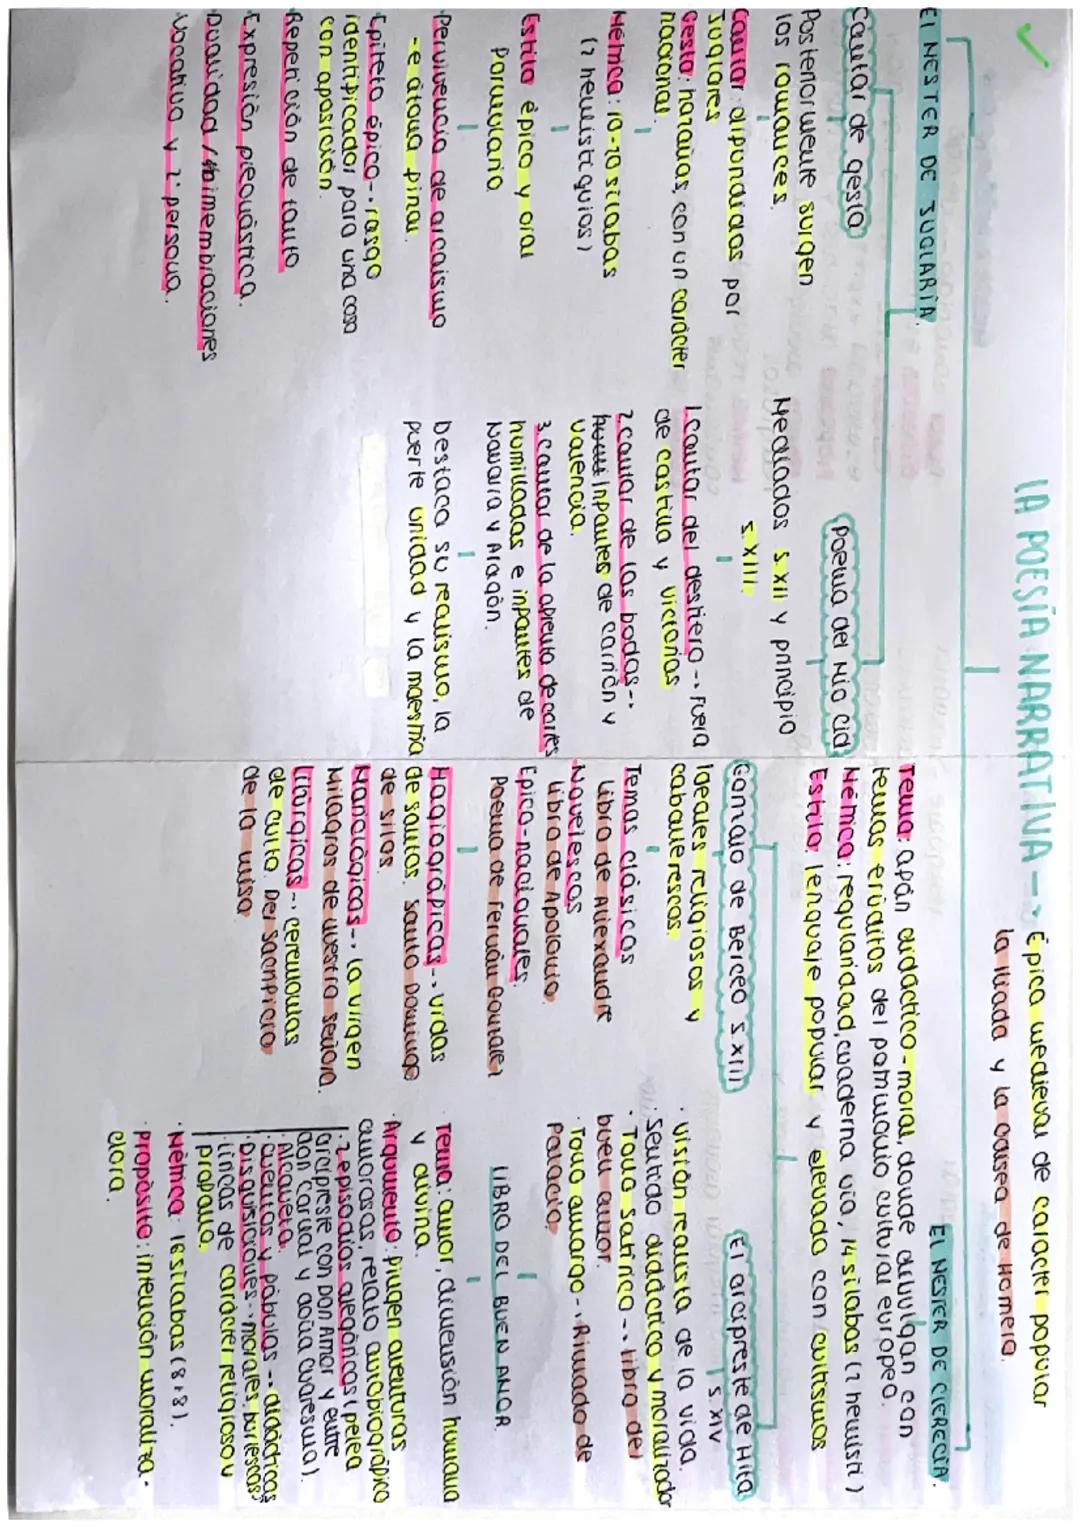 LA POESÍA NARRATIVA --> Épica medieval de caracter popular
la Iliada y la Odisea de Homero.
El MESTER DE JUGLARÍA.
Cantar de gesta
Posteriormente surgen
los romances.
Cantar: difundidas por
juglares
Gesta: hazañas, con un carácter
nacional.
Métrica: 10-20 sílabas
(2 hemistiquios)
Estilo épico y oral
Formulario
Pervivencia de arcaismo
-e átona final.
·Epíteto épico -> rasgo
identificador para una cosa
con aposición.
·Repetición de tanto
·Expresión pleonástica.
·Dualidad / bimembraciones
·Vocativo y 2ª persona.
Poema del Mio Cid
Mediados s.XII y principio
s.XIII.
1.Cantar del destierro -> Fuera
de castilla y victorias
2.Cantar de las bodas ->
Infantes de Carrión y
Valencia.
3.Cantar de la afrenta de cortes
humilladas e infantes de
Navarra y Aragón.
Destaca su realismo, la
fuerte unidad y la maestria
El MESTER DE CLERECÍA.
Tema: afán didáctico-moral, donde divulgan con
temas erúditos del patrimonio cultural europeo.
Métrica: regularidad, cuaderna vía, 14 sílabas (2 hemisti)
Estilo: lenguaje popular y elevado con cultismos
Gonzalo de Berceo s.XIII
Ideales religiosos y
caballerescos.
Temas clásicos
Libro de Alexandre
·Novelescos
Libro de Apolonio.
Épico-nacionales.
Poema de Fernán González
Hagiográficas -> vidas
de santos. Santo Domingo
de silos.
Marialógicas -> la virgen
Milagros de nuestra señora.
Litúrgicas -> ceremonias
de culto. Del sacrificio
de la misa.
El arcipreste de Hita
s.XIV
· Visión realista de la vida.
· Sentido didáctico y moralizador
· Tono satírico -> libro del
buen amor.
· Tono amargo - Rimado de
Palacio.
LIBRO DEL BUEN AMOR.
Tema: amor, dimensión humana
y divina.
Argumento: fingen aventuras
amorosas, relato autobiográfico
· 2 episodios alegóricos (pelea
arcipreste con Don Amor y entre
don Carnal y doña Cuaresma).
·Alcahueta.
·Cuentos y fábulas -> didácticas
·Disquisiciones -> morales, burlescos
·Líricas de carácter religioso y
profano.
·Métrica: 16 sílabas (8+8).
·propósito: intención moraliza-
dora.